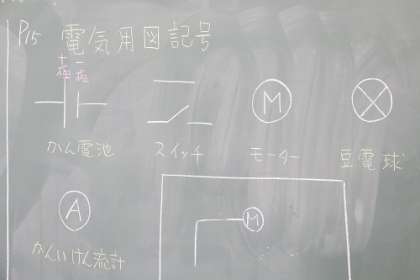 P15 電気用図記号
+極 −極
M
かん電池 スイッチ モーター 豆電球
A
かんいけん流計
M